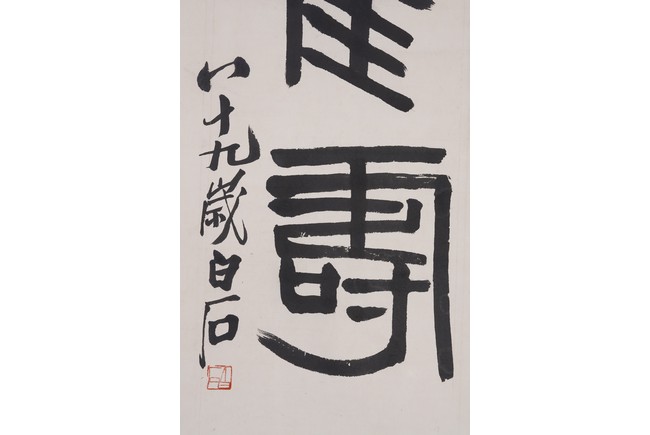 壽
八十九歲白石